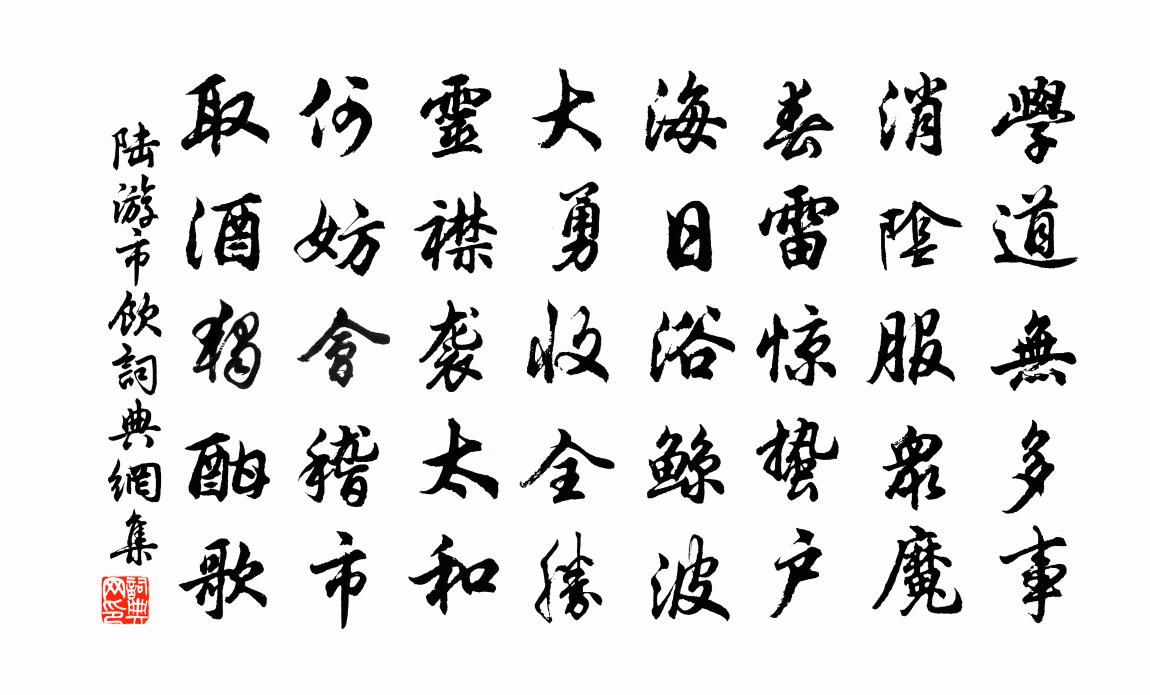 學道無多事
消陰服衆魔
春雷惊蛰户
海日浴鲸波
大勇收全勝
靈襟袭太和
何妨會稽市
取酒獨酣歌
陆游市飲詞典網集
詞典网印